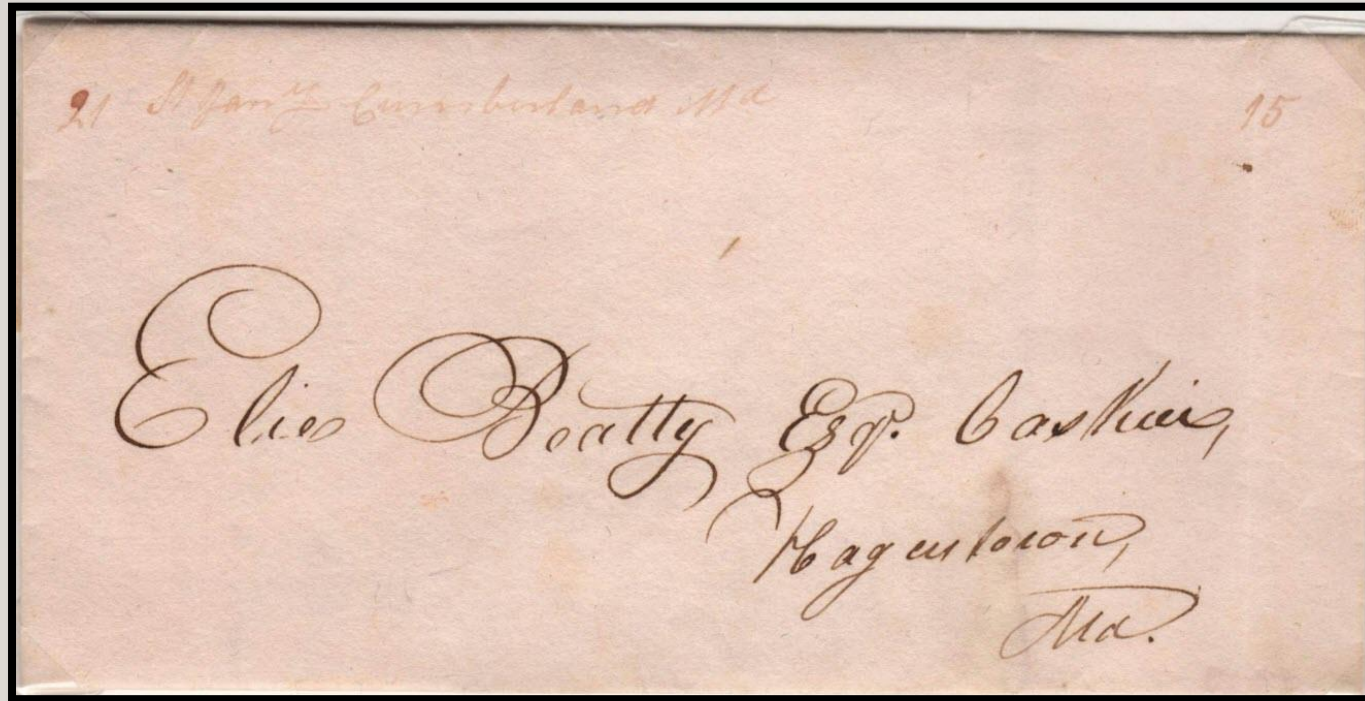 21 Jany Cumberland Md 15
Elie Beatty Esqr. Cashier,
Hagerstown,
Md.